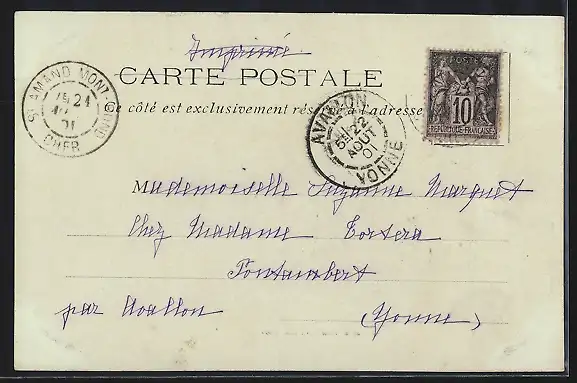 Imprimé
CARTE POSTALE
Ce côté est exclusivement réservé à l'adresse
POSTE
10
REPUBLIQUE FRANÇAISE
ST AMAND MONT-ROND
21
01
CHER
AVALLON
5E 22
AOUT
01
YONNE
Mademoiselle Suzanne Marquet
Chez Madame Tortera
Fontambert
par Avallon (Yonne)